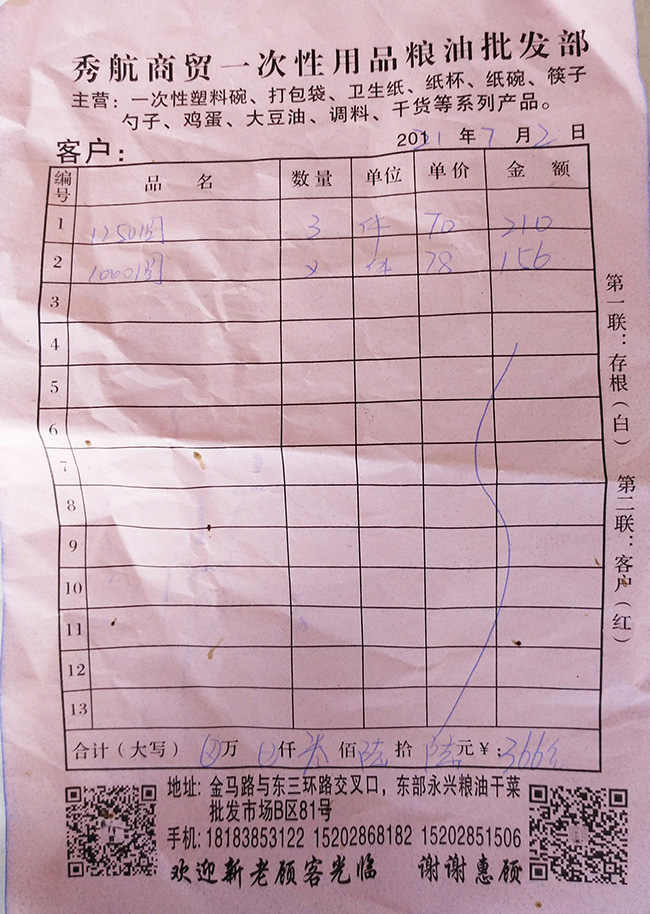 秀航商贸一次性用品粮油批发部
主营：一次性塑料碗、打包袋、卫生纸、纸杯、纸碗、筷子
勺子、鸡蛋、大豆油、调料、干货等系列产品。
客户： 201 21 年 7 月 2 日
编号 品 名 数量 单位 单价 金 额
1 1250圆 3 件 70 210
2 1000圆 2 件 78 156
3
4
5
6
7
8
9
10
11
12
13
合计（大写） 万 仟 叁 佰 陆 拾 陆 元￥： 366
第一联：存根（白） 第二联：客户（红）
地址：金马路与东三环路交叉口，东部永兴粮油干菜
批发市场B区81号
手机：18183853122 15202868182 15202851506
欢迎新老顾客光临 谢谢惠顾